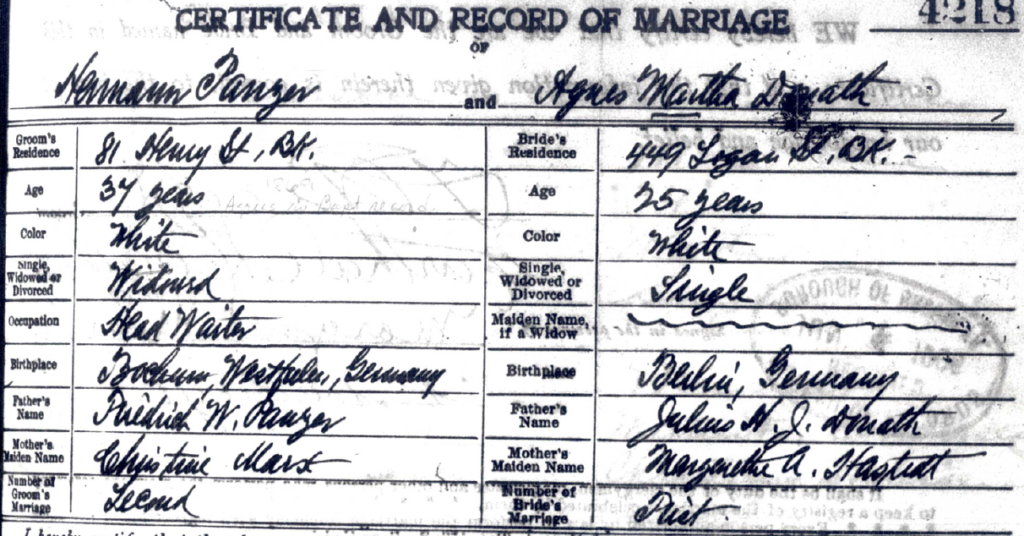 CERTIFICATE AND RECORD OF MARRIAGE 4218
OF
Hermann Panzer and Agnes Martha Donath
Groom's Residence 81 Henry St, BK. Bride's Residence 449 Logan St. BK.
Age 37 years Age 25 years
Color White Color White
Single, Widowed or Divorced Widowed Single, Widowed or Divorced Single
Occupation Head Waiter Maiden Name, if a Widow
Birthplace Bochum, Westfalen, Germany Birthplace Berlin, Germany
Father's Name Friedrich W. Panzer Father's Name Julius H. J. Donath
Mother's Maiden Name Christine Marx Mother's Maiden Name Margarethe A. Hastedt
Number of Groom's Marriage Second Number of Bride's Marriage First
I hereby certify that the